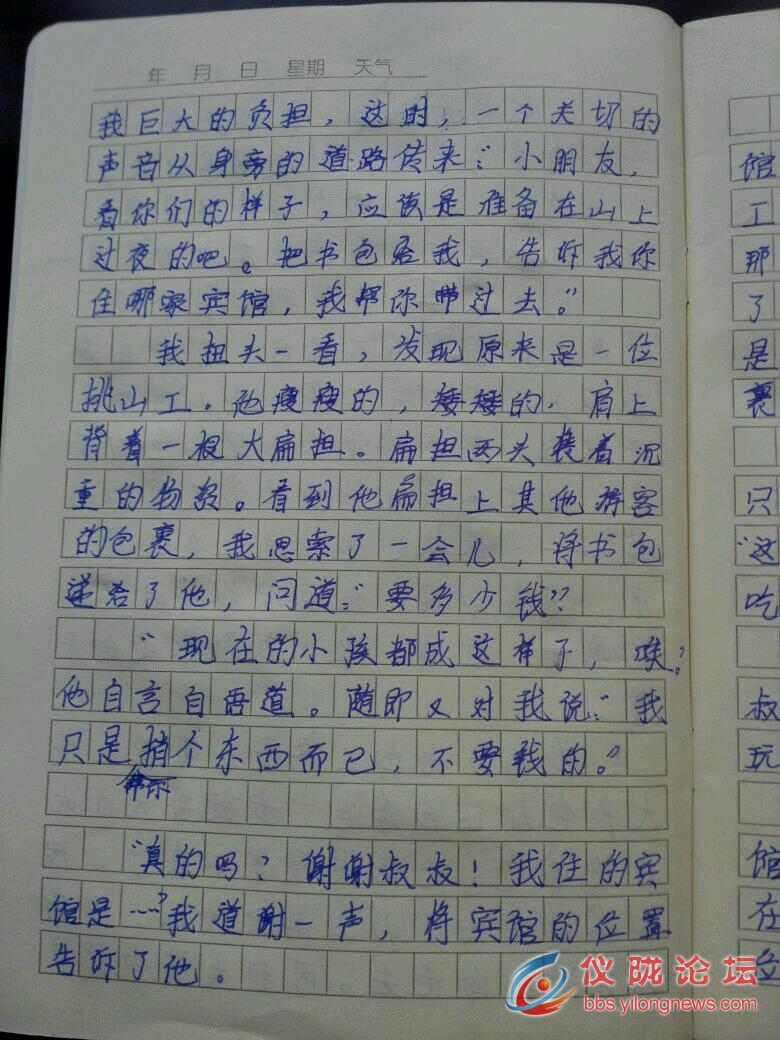 年 月 日 星期 天气
我巨大的负担，这时，一个关切的
声音从身旁的道路传来：“小朋友，
看你们的样子，应该是准备在山上
过夜的吧。把书包给我，告诉我你
住哪家宾馆，我帮你带过去。”
我扭头一看，发现原来是一位
挑山工。他瘦瘦的，矮矮的，肩上
背着一根大扁担。扁担两头装着沉
重的物资。看到他扁担上其他游客
的包裹，我思索了一会儿，将书包
递给了他，问道：“要多少钱？”
“现在的小孩都成这样子，唉。”
他自言自语道。随即又对我说：“我
只是捎个东西而已，不要钱的。”
帮你
“真的吗？谢谢叔叔！我住的宾
馆是……”我道谢一声，将宾馆的位置
告诉了他。
馆
工
那
了
是
裹
只
“这
吃
叔
玩
馆
在
位
仪陇论坛
bbs.yilongnews.com